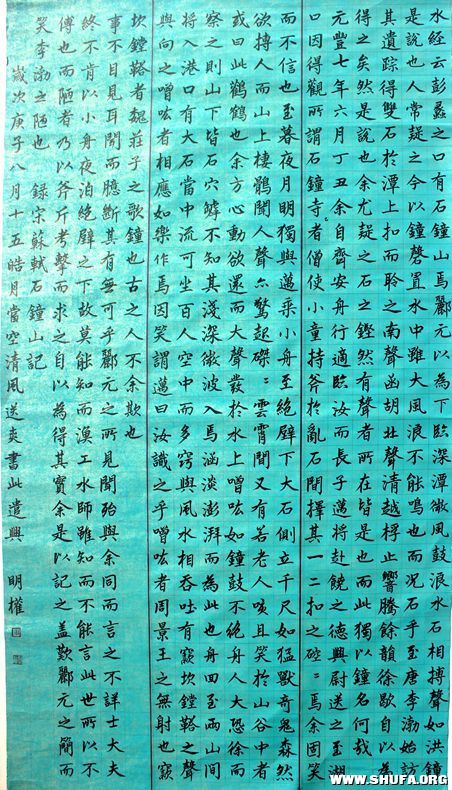 水經云彭蠡之口有石鐘山焉酈元以為下臨深潭微風鼓浪水石相搏聲如洪鐘
是說也人常疑之今以鐘磬置水中雖大風浪不能鳴也而況石乎至唐李渤始訪
其遺踪得雙石於潭上扣而聆之南聲函胡北聲清越桴止響騰餘韻徐歇自以為
得之矣然是說也余尤疑之石之鏗然有聲者所在皆是也而此獨以鐘名何哉
元豐七年六月丁丑余自齊安舟行適臨汝而長子邁將赴饒之德興尉送之至湖
口因得觀所謂石鐘寺者僧使小童持斧於亂石間擇其一二扣之硿々焉余固笑
而不信也至暮夜月明獨與邁乘小舟至絕壁下大石側立千尺如猛獸奇鬼森然
欲搏人而山上棲鶻聞人聲亦驚起磔々雲霄間又有若老人咳且笑於山谷中者
或曰此鸛鶴也余方心動欲還而大聲發於水上噌吰如鐘鼓不絕舟人大恐徐而
察之則山下皆石穴罅不知其淺深微波入焉涵淡澎湃而為此也舟回至兩山間
將入港口有大石當中流可坐百人空中而多竅與風水相吞吐有窾坎鏜鞳之聲
與向之噌吰者相應如樂作焉因笑謂邁曰汝識之乎噌吰者周景王之無射也窾
坎鏜鞳者魏莊子之歌鐘也古之人不余欺也
事不目見耳聞而臆斷其有無可乎酈元之所見聞殆與余同而言之不詳士大夫
終不肯以小舟夜泊絕壁之下故莫能知而漁工水師雖知而不能言此世所以不
傳也而陋者乃以斧斤考擊而求之自以為得其實余是以記之蓋歎酈元之簡而
笑李渤之陋也 錄宋蘇軾石鐘山記
歲次庚子八月十五皓月當空清風送爽書此遣興 明權
WWW.SHUFA.ORG